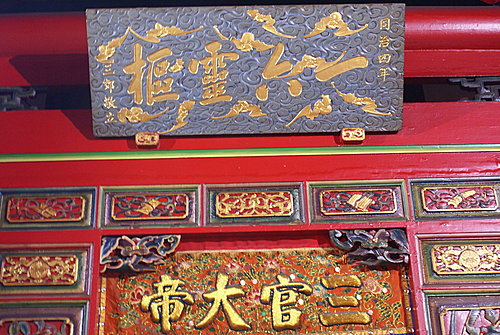 同治四年
一六靈樞
三郊敬立
三官大帝